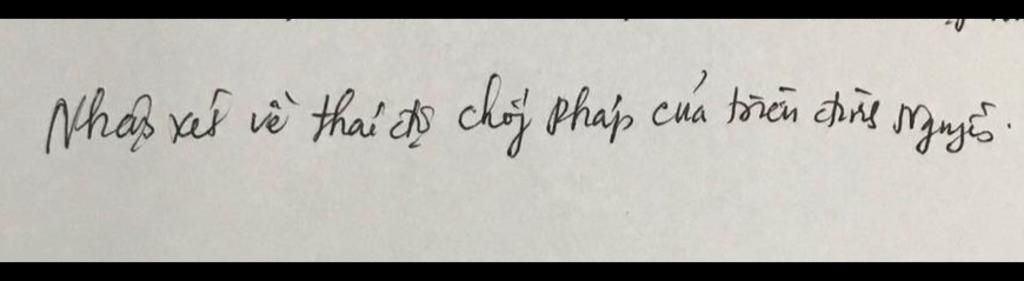 Nhận xét về thái độ chống Pháp của triều đình Nguyễn.